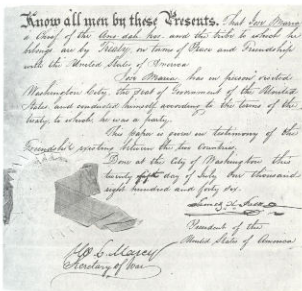 Know all men by these Presents. That José Maria
a Chief of the Ano-dah-kos, and the tribe to which he
belongs are by Treaty, on terms of Peace and Friendship
with the United States of America
José Maria has in person visited
Washington City, the Seat of Government of the United
States, and conducted himself according to the terms of the
treaty, to which he was a party.
This paper is given in testimony of the
friendship existing between the two Countries.
Done at the City of Washington this
twenty fifth day of July One thousand
eight hundred and forty six.
James K. Polk
President of the
United States of America
W. L. Marcy
Secretary of War